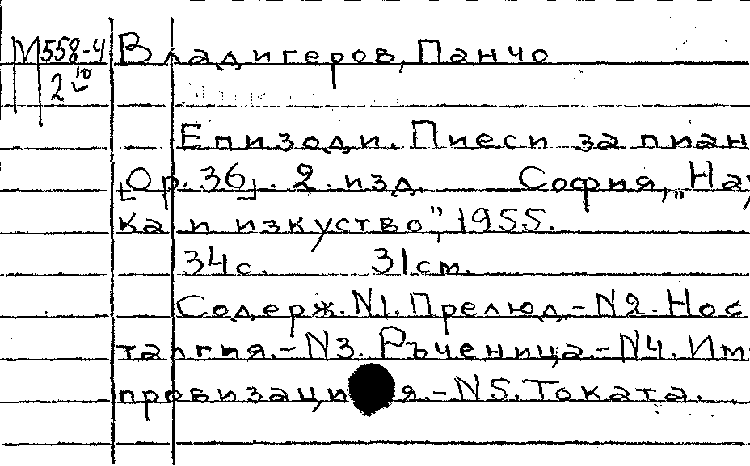 М558-4 Владигеров, Панчо
2 10
Епизоди. Пиеси за пиан
[Ор. 36]. 2. изд. София, „Нау
ка и изкуство", 1955.
34с. 31см.
Содерж. N1. Прелюд.-N2. Нос
талгия.-N3. Ръченица.-N4. Им
провизация.-N5. Токата.